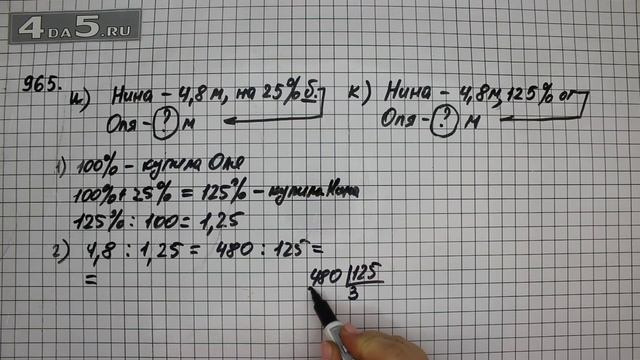 4DA5.RU
965.
и) Нина - 4,8 м, на 25% б.
Оля - ? м
к) Нина - 4,8 м, 125% от
Оля - ? м
1) 100% - купила Оля
100% + 25% = 125% - купила Нина
125% : 100 = 1,25
2) 4,8 : 1,25 = 480 : 125 =
=
480 125
3